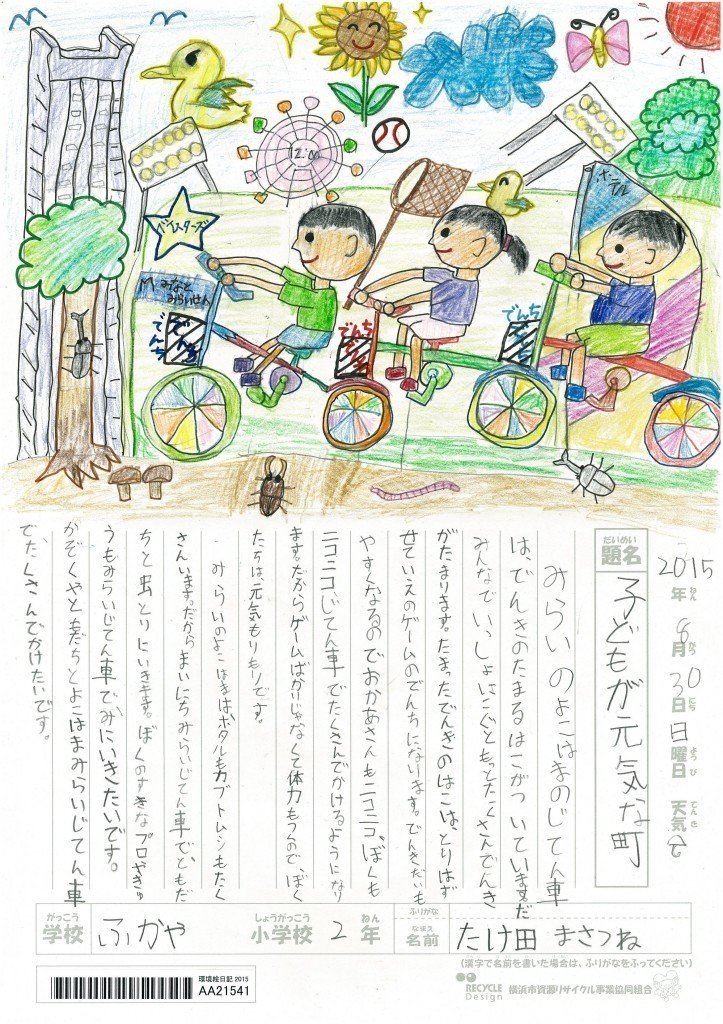 ベイスターズ
12:00
ホテル
M みなと
みらいせん
でんち
でんち
でんち
でんち
でんち
2015年ねん8月がつ30日にち日曜日ようび 天気てんき
だいめい
題名
子どもが元気な町
みらいのよこはまのじてん車
は、でんきのたまるはこがついています。
みんなでいっしょにこぐともっとたくさんでんき
がたまります。たまったでんきのはこは、とりはず
せていえのゲームのでんちになります。でんきだいも
やすくなるのでおかあさんもニコニコ、ぼくも
ニコニコ、じてん車でたくさんでかけるようになり
ます。だからゲームばかりじゃなくて体力もつくので、ぼく
たちは、元気もりもりです。
みらいのよこはまは、ホタルもカブトムシもたく
さんいます。だからまいにちみらいじてん車でともだ
ちと虫とりにいきます。ぼくのすきなプロやきゅ
うもみらいじてん車でみにいきたいです。
かぞくやともだちとよこはまみらいじてん車
でたくさんでかけたいです。
がっこう しょうがっこう ねん ふりがな なまえ
学校 ふかや 小学校 2年 名前 たけ田 まさつね
(漢字で名前を書いた場合は、ふりがなをふってください)
環境絵日記 2015
AA21541
RECYCLE Design 横浜市資源リサイクル事業協同組合